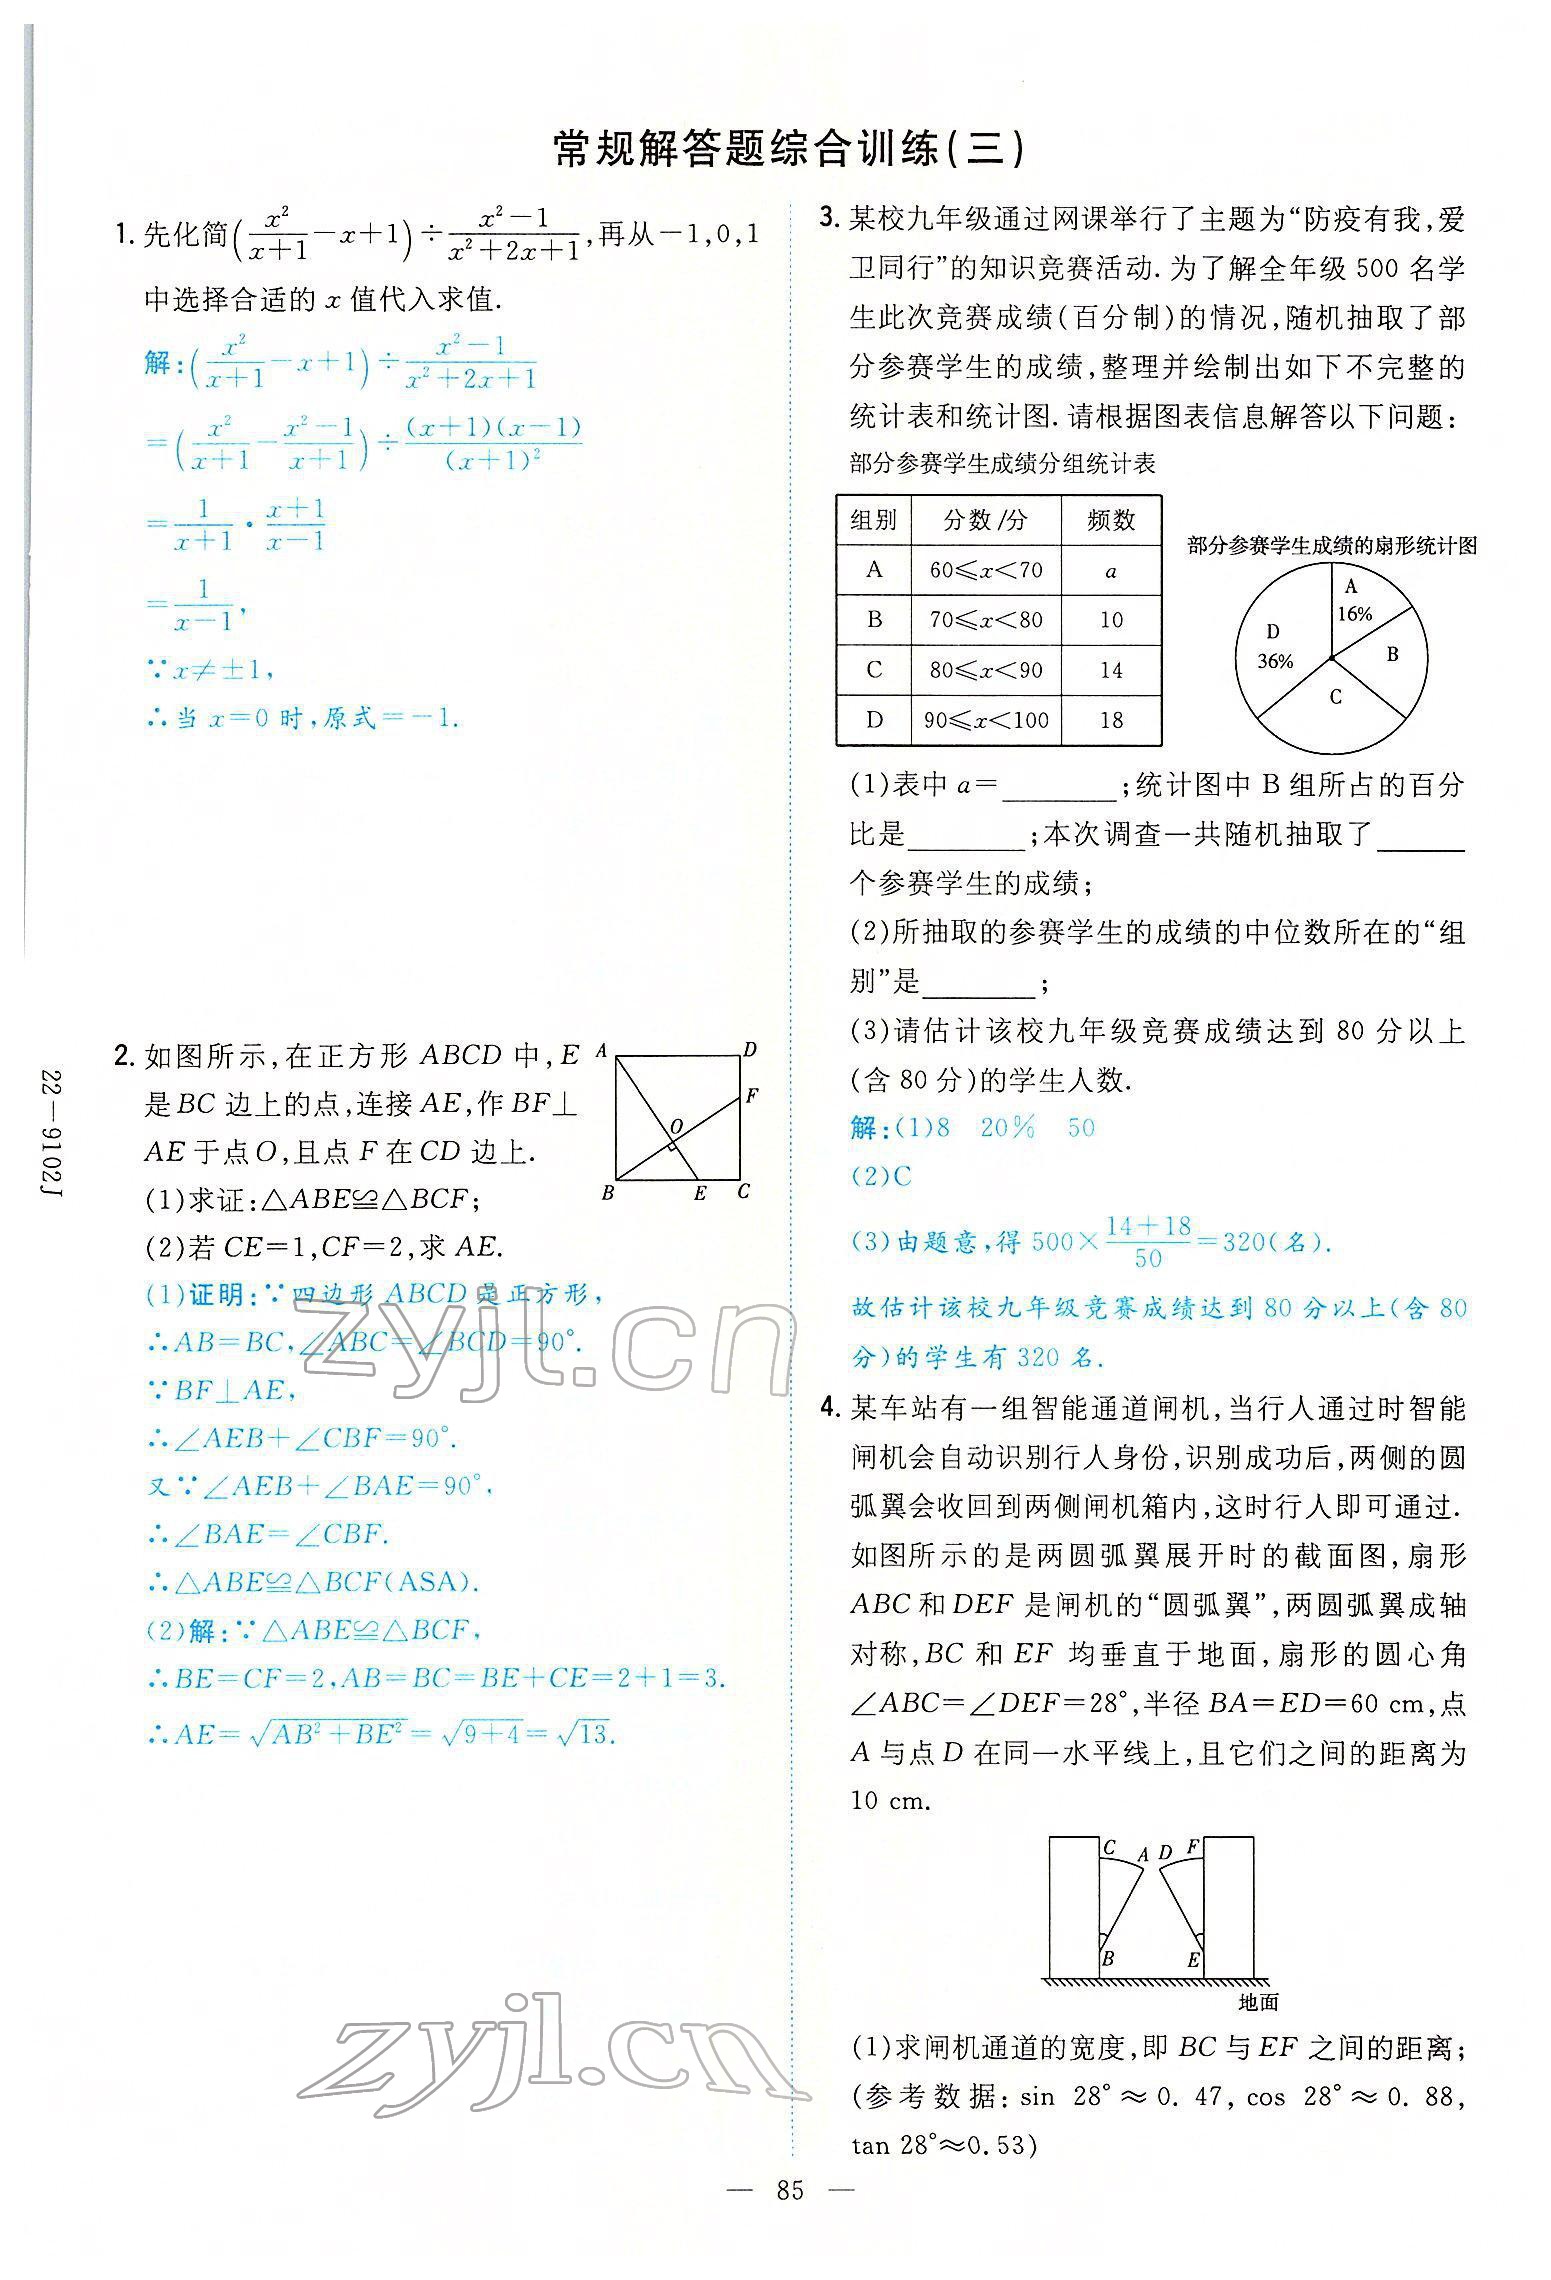 常规解答题综合训练(三)
1. 先化简(x²/(x+1)-x+1)÷(x²-1)/(x²+2x+1),再从-1,0,1
中选择合适的 x 值代入求值.
解:(x²/(x+1)-x+1)÷(x²-1)/(x²+2x+1)
=(x²/(x+1)-(x²-1)/(x+1))÷(x+1)(x-1)/(x+1)²
=1/(x+1)·(x+1)/(x-1)
=1/(x-1),
∵x≠±1,
∴当 x=0 时,原式=-1.
2. 如图所示,在正方形 ABCD 中,E
是 BC 边上的点,连接 AE,作 BF⊥
AE 于点 O,且点 F 在 CD 边上.
(1)求证:△ABE≌△BCF;
(2)若 CE=1,CF=2,求 AE.
A
D
F
O
B
E
C
(1)证明:∵四边形 ABCD 是正方形,
∴AB=BC,∠ABC=∠BCD=90°.
∵BF⊥AE,
∴∠AEB+∠CBF=90°.
又∵∠AEB+∠BAE=90°,
∴∠BAE=∠CBF.
∴△ABE≌△BCF(ASA).
(2)解:∵△ABE≌△BCF,
∴BE=CF=2,AB=BC=BE+CE=2+1=3.
∴AE=√(AB²+BE²)=√(9+4)=√13.
3. 某校九年级通过网课举行了主题为“防疫有我,爱
卫同行”的知识竞赛活动.为了解全年级 500 名学
生此次竞赛成绩(百分制)的情况,随机抽取了部
分参赛学生的成绩,整理并绘制出如下不完整的
统计表和统计图.请根据图表信息解答以下问题:
部分参赛学生成绩分组统计表
组别 分数/分 频数
A 60≤x<70 a
B 70≤x<80 10
C 80≤x<90 14
D 90≤x<100 18
部分参赛学生成绩的扇形统计图
A
16%
D
36%
B
C
(1)表中 a=________;统计图中 B 组所占的百分
比是________;本次调查一共随机抽取了______
个参赛学生的成绩;
(2)所抽取的参赛学生的成绩的中位数所在的“组
别”是________;
(3)请估计该校九年级竞赛成绩达到 80 分以上
(含 80 分)的学生人数.
解:(1)8 20% 50
(2)C
(3)由题意,得 500×(14+18)/50=320(名).
故估计该校九年级竞赛成绩达到 80 分以上(含 80
分)的学生有 320 名.
4. 某车站有一组智能通道闸机,当行人通过时智能
闸机会自动识别行人身份,识别成功后,两侧的圆
弧翼会收回到两侧闸机箱内,这时行人即可通过.
如图所示的是两圆弧翼展开时的截面图,扇形
ABC 和 DEF 是闸机的“圆弧翼”,两圆弧翼成轴
对称,BC 和 EF 均垂直于地面,扇形的圆心角
∠ABC=∠DEF=28°,半径 BA=ED=60 cm,点
A 与点 D 在同一水平线上,且它们之间的距离为
10 cm.
C A D F
B E
地面
(1)求闸机通道的宽度,即 BC 与 EF 之间的距离;
(参考数据: sin 28°≈0.47, cos 28°≈0.88,
tan 28°≈0.53)
22—9102J
zyjl.cn
zyjl.cn
— 85 —